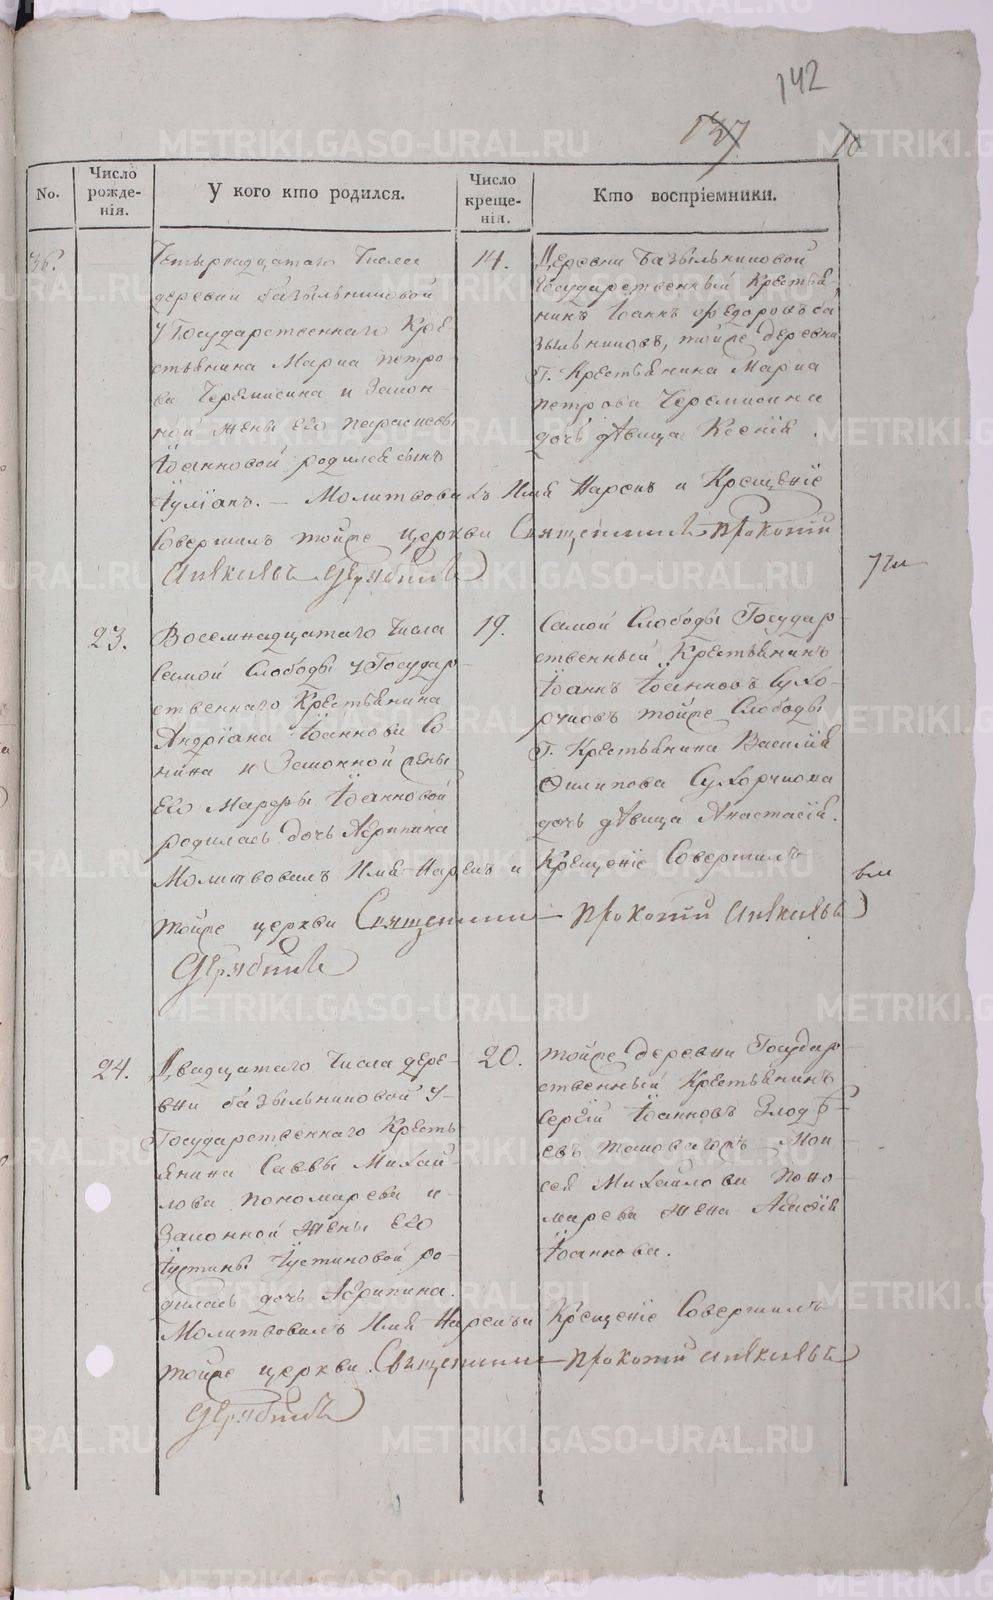 142
137
10
No.
Число рожденія.
У кого кто родился.
Число крещенія.
Кто воспріемники.
36.
Четырнадцатаго Числа
деревни базыльниковой
у Государственнаго Кре
стьянина Марка петро
ва Черемисина и Закон
ной жены его параскевы
Іоанновой родился сынъ
Іуліанъ. — Молитвовалъ Имя Нарекъ и Крещеніе
Совершилъ тойже церкви Священникъ Прокопій
14.
Деревни базыльниковой
Государственный Крестья-
нинъ Іоаннъ Федоровъ ба
зыльниковъ, тойже деревни
Г. Крестьянина Марка
петрова Черемисина
дочь дѣвица Ксенія.
23.
Восемнадцатаго Числа
Самой Слободы у Государ-
ственнаго Крестьянина
Андріана Іоаннова Со
нина и Законной жены
Его Марфы Іоанновой
родилась дочь Агрипина
Молитвовалъ Имя Нарекъ и Крещеніе Совершилъ
тойже церкви Священникъ Прокопій
19.
Самой Слободы Государ-
ственный Крестьянинъ
Іоаннъ Іоанновъ Сухо-
рчковъ тойже Слободы
Г. Крестьянина Василія
Филипова
дочь дѣвица Анастасія.
24.
Двадцатаго Числа дере-
вни базыльниковой у
Государственнаго Кресть
янина Саввы Михай-
лова пономарева и
Законной жены Его
Іустины Іустиновой ро-
дилась дочь Агрипина.
Молитвовалъ Имя Нарекъ и Крещеніе Совершилъ
тойже церкви Священникъ Прокопій
20.
тойже деревни Государ-
ственный Крестьянинъ
Сергій Іоанновъ Злодѣ-
евъ Мои
сея Михайлова Поно-
марева жена
Іоаннова.
METRIKI.GASO-URAL.RU